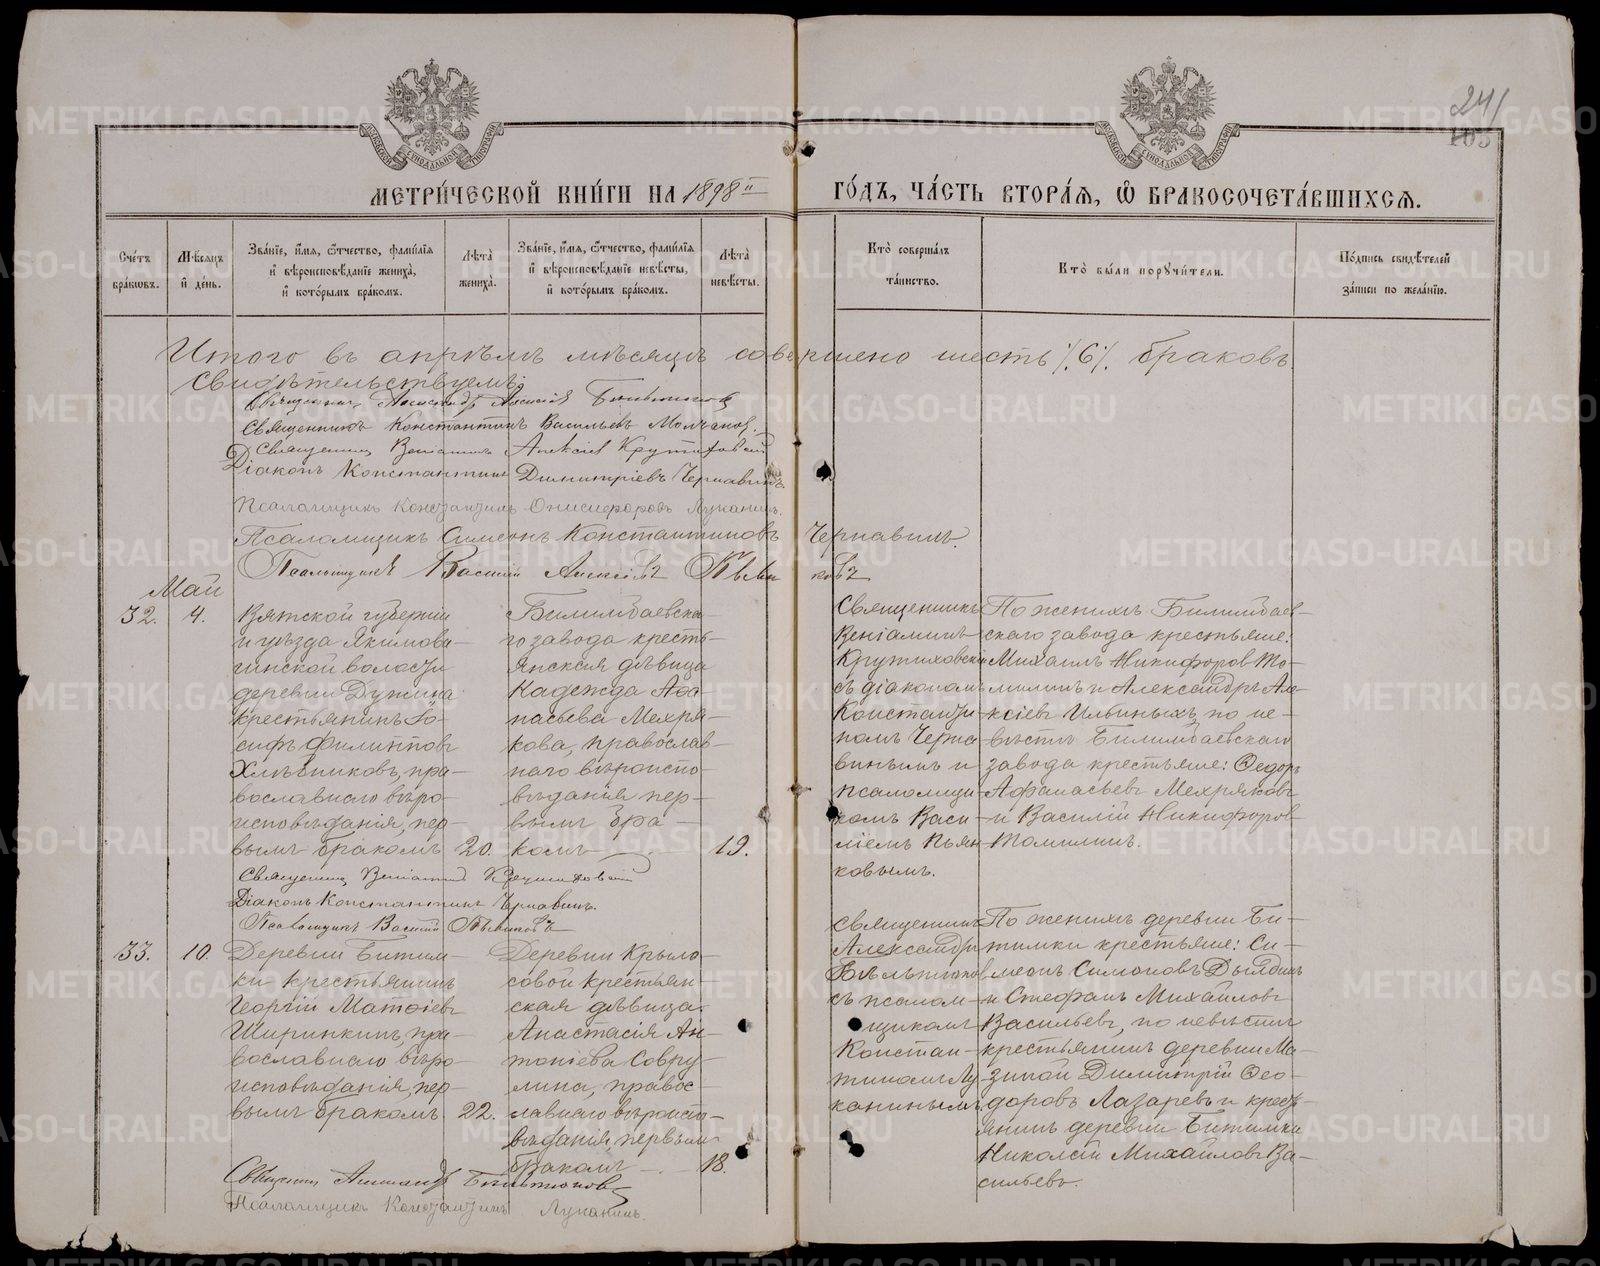 241
103
МЕТРИ́ЧЕСКОЙ КНИ́ГИ НА 1898й ГО́ДЪ, ЧА́СТЬ ВТОРА́Я, Ѡ БРАКОСОЧЕТА́ВШИХСЯ.
Сче́тъ бра́ковъ.
Мѣ́сяцъ и де́нь.
Зва́нїе, и́мя, ѻ́тчество, фами́лїя и вѣроисповѣ́данїе жениха̀, и кото́рымъ бра́комъ.
Лѣта̀ жениха̀.
Зва́нїе, и́мя, ѻ́тчество, фами́лїя и вѣроисповѣ́данїе невѣ́сты, и кото́рымъ бра́комъ.
Лѣта̀ невѣ́сты.
Кто̀ соверша́лъ та́инство.
Кто̀ бы́ли поручи́тели.
По́дпись свидѣ́телей за́писи по жела́нїю.
Итого въ апрѣлѣ мѣсяцѣ совершено шесть /6/ браковъ.
Свидѣтельствуемъ:
Священникъ Александръ Алексѣевъ Бѣльтюковъ
Священникъ Константинъ Васильевъ Молчановъ.
Священникъ Веніаминъ Алексѣевъ Крутиховскій
Діаконъ Константинъ Димитріевъ Чернавинъ
Псаломщикъ Константинъ Онисифоровъ Луканинъ.
Псаломщикъ Симеонъ Константиновъ Чернавинъ.
Псаломщикъ Василій Алексѣевъ Пьянковъ
Май
32.
4.
Вятской губерніи
и уѣзда Якимова-
гинской волости
деревни Дунина
крестьянинъ Іо-
сифъ Филипповъ
Хлѣбниковъ, пра-
вославнаго вѣро-
исповѣданія, пер-
вымъ бракомъ
20.
Билимбаевска-
го завода кресть-
янская дѣвица
Надежда Аѳа-
насьева Мехря-
кова, православ-
наго вѣроиспо-
вѣданія пер-
вымъ бра-
комъ
19.
Священникъ
Веніаминъ
Крутиховскій
съ діакономъ
Константи-
номъ Черна-
винымъ и
псаломщи-
комъ Васи-
ліемъ Пьян-
ковымъ.
По женихѣ Билимбаев-
скаго завода крестьяне:
Михаилъ Никифоровъ То-
милинъ и Александръ Але-
ксіевъ Ильиныхъ, по не-
вѣстѣ Билимбаевскаго
завода крестьяне: Ѳедоръ
Аѳанасьевъ Мехряковъ
и Василій Никифоровъ
Томилинъ.
Священникъ Веніаминъ Крутиховскій
Діаконъ Константинъ Чернавинъ.
Псаломщикъ Василій Пьянковъ
33.
10.
Деревни Битим-
ки крестьянинъ
Георгій Матѳіевъ
Ширинкинъ, пра-
вославнаго вѣро-
исповѣданія, пер-
вымъ бракомъ.
22.
Деревни Крыло-
совой крестьян-
ская дѣвица
Анастасія Ан-
тоніева Совру-
лина, правос-
лавнаго вѣроиспо-
вѣданія первымъ
бракомъ
18.
Священникъ
Александръ
Бѣльтюковъ
съ псалом-
щикомъ
Констан-
тиномъ Лу-
канинымъ
По женихѣ деревни Би-
тимки крестьяне: Си-
меонъ Симоновъ Дылдинъ
и Стефанъ Михайловъ
Васильевъ, по невѣстѣ
крестьянинъ деревни Ма-
зиной Димитрій Ѳео-
доровъ Лазаревъ и крест-
янинъ деревни Битимки
Николай Михайловъ Ва-
сильевъ.
Священникъ Александръ Бѣльтюковъ
Псаломщикъ Константинъ Луканинъ.